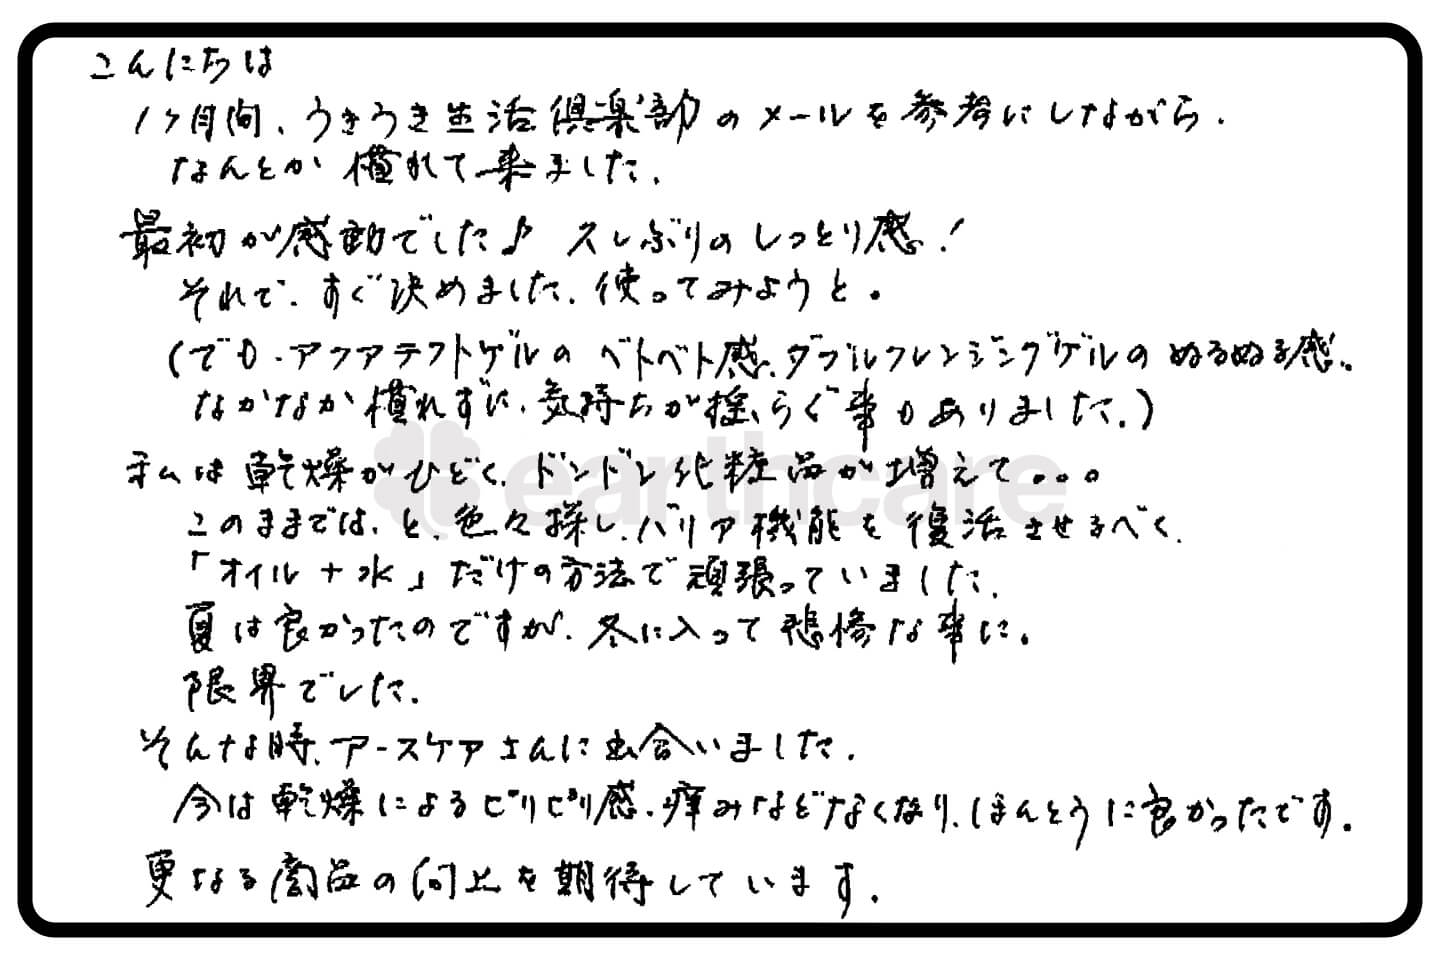 こんにちは
1ヶ月間、うきうき生活倶楽部のメールを参考にしながら、
なんとか慣れて来ました。
最初が感動でした♪ 久しぶりのしっとり感!
それで、すぐ決めました、使ってみようと。
(でも、アクアテクトゲルのベトベト感、ダブルクレンジングゲルのぬるぬる感。
なかなか慣れずに、気持ちが揺らぐ事もありました。)
私は乾燥がひどく、ドンドン化粧品が増えて。。。
このままでは、と、色々探し、バリア機能を復活させるべく、
「オイル+水」だけの方法で頑張っていました。
夏は良かったのですが、冬に入って悲惨な事に。
限界でした。
そんな時、アースケアさんに出会いました。
今は乾燥によるピリピリ感、痒みなどなくなり、ほんとうに良かったです。
更なる商品の向上を期待しています。
earthcare